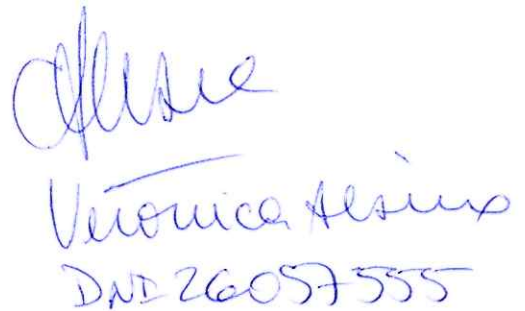 Verónica Alsina
DNI 26057555